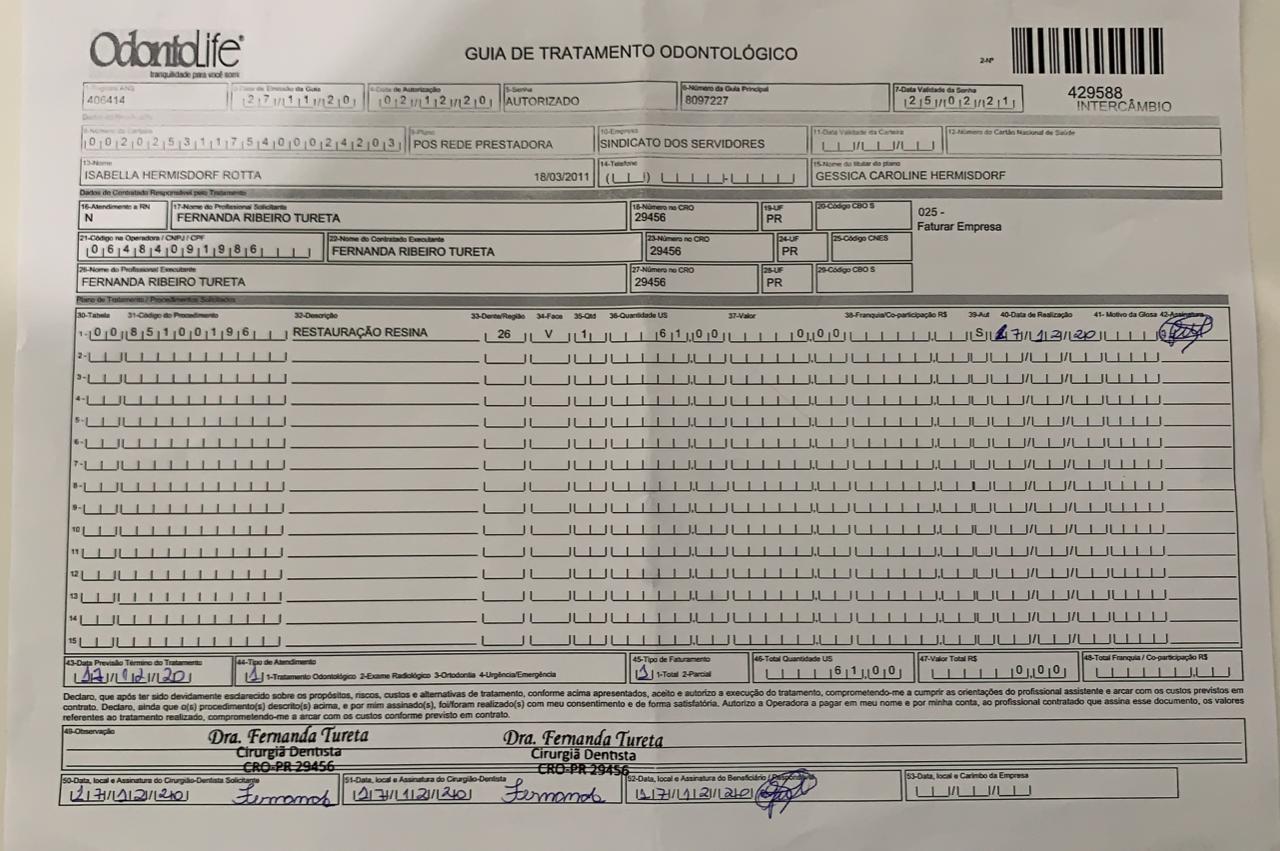 OdontoLife®
tranquilidade para você sorrir
GUIA DE TRATAMENTO ODONTOLÓGICO
2-Nº
429588
INTERCÂMBIO
406414
3-Data de Emissão da Guia 27/11/20
4-Data de Autorização 02/12/20
5-Senha AUTORIZADO
6-Número da Guia Principal 8097227
7-Data Validade da Senha 25/02/21
8-Número da Carteira 00202531175400024203
9-Plano POS REDE PRESTADORA
10-Empresa SINDICATO DOS SERVIDORES
11-Data Validade da Carteira
12-Número do Cartão Nacional de Saúde
13-Nome ISABELLA HERMISDORF ROTTA 18/03/2011
14-Telefone
15-Nome do titular do plano GESSICA CAROLINE HERMISDORF
Dados do Contratado Responsável pelo Tratamento
16-Atendimento a RN N
17-Nome do Profissional Solicitante FERNANDA RIBEIRO TURETA
18-Número no CRO 29456
19-UF PR
20-Código CBO S
025 -
Faturar Empresa
21-Código na Operadora / CNPJ / CPF 06484091986
22-Nome do Contratado Executante FERNANDA RIBEIRO TURETA
23-Número no CRO 29456
24-UF PR
25-Código CNES
26-Nome do Profissional Executante FERNANDA RIBEIRO TURETA
27-Número no CRO 29456
28-UF PR
29-Código CBO S
Plano de Tratamento / Procedimentos Solicitados
30-Tabela 31-Código do Procedimento 32-Descrição 33-Dente/Região 34-Face 35-Qtd 36-Quantidade US 37-Valor 38-Franquia/Co-participação R$ 39-Aut 40-Data de Realização 41- Motivo da Glosa 42-Assinatura
1- 00 85100196 RESTAURAÇÃO RESINA 26 V 1 61,00 0,00 S 17/12/20
2-
3-
4-
5-
6-
7-
8-
9-
10
11
12
13
14
15
43-Data Previsão Término do Tratamento 17/12/20
44-Tipo de Atendimento 1 1-Tratamento Odontológico 2-Exame Radiológico 3-Ortodontia 4-Urgência/Emergência
45-Tipo de Faturamento 1 1-Total 2-Parcial
46-Total Quantidade US 61,00
47-Valor Total R$ 0,00
48-Total Franquia / Co-participação R$
Declaro, que após ter sido devidamente esclarecido sobre os propósitos, riscos, custos e alternativas de tratamento, conforme acima apresentados, aceito e autorizo a execução do tratamento, comprometendo-me a cumprir as orientações do profissional assistente e arcar com os custos previstos em
contrato. Declaro, ainda que o(s) procedimento(s) descrito(s) acima, e por mim assinado(s), foi/foram realizado(s) com meu consentimento e de forma satisfatória. Autorizo a Operadora a pagar em meu nome e por minha conta, ao profissional contratado que assina esse documento, os valores
referentes ao tratamento realizado, comprometendo-me a arcar com os custos conforme previsto em contrato.
49-Observação
Dra. Fernanda Tureta
Cirurgiã Dentista
CRO-PR 29456
Dra. Fernanda Tureta
Cirurgiã Dentista
CRO-PR 29456
50-Data, local e Assinatura do Cirurgião-Dentista Solicitante 17/12/20 Fernanda
51-Data, local e Assinatura do Cirurgião-Dentista 17/12/20 Fernanda
52-Data, local e Assinatura do Beneficiário / 17/12/20
53-Data, local e Carimbo da Empresa